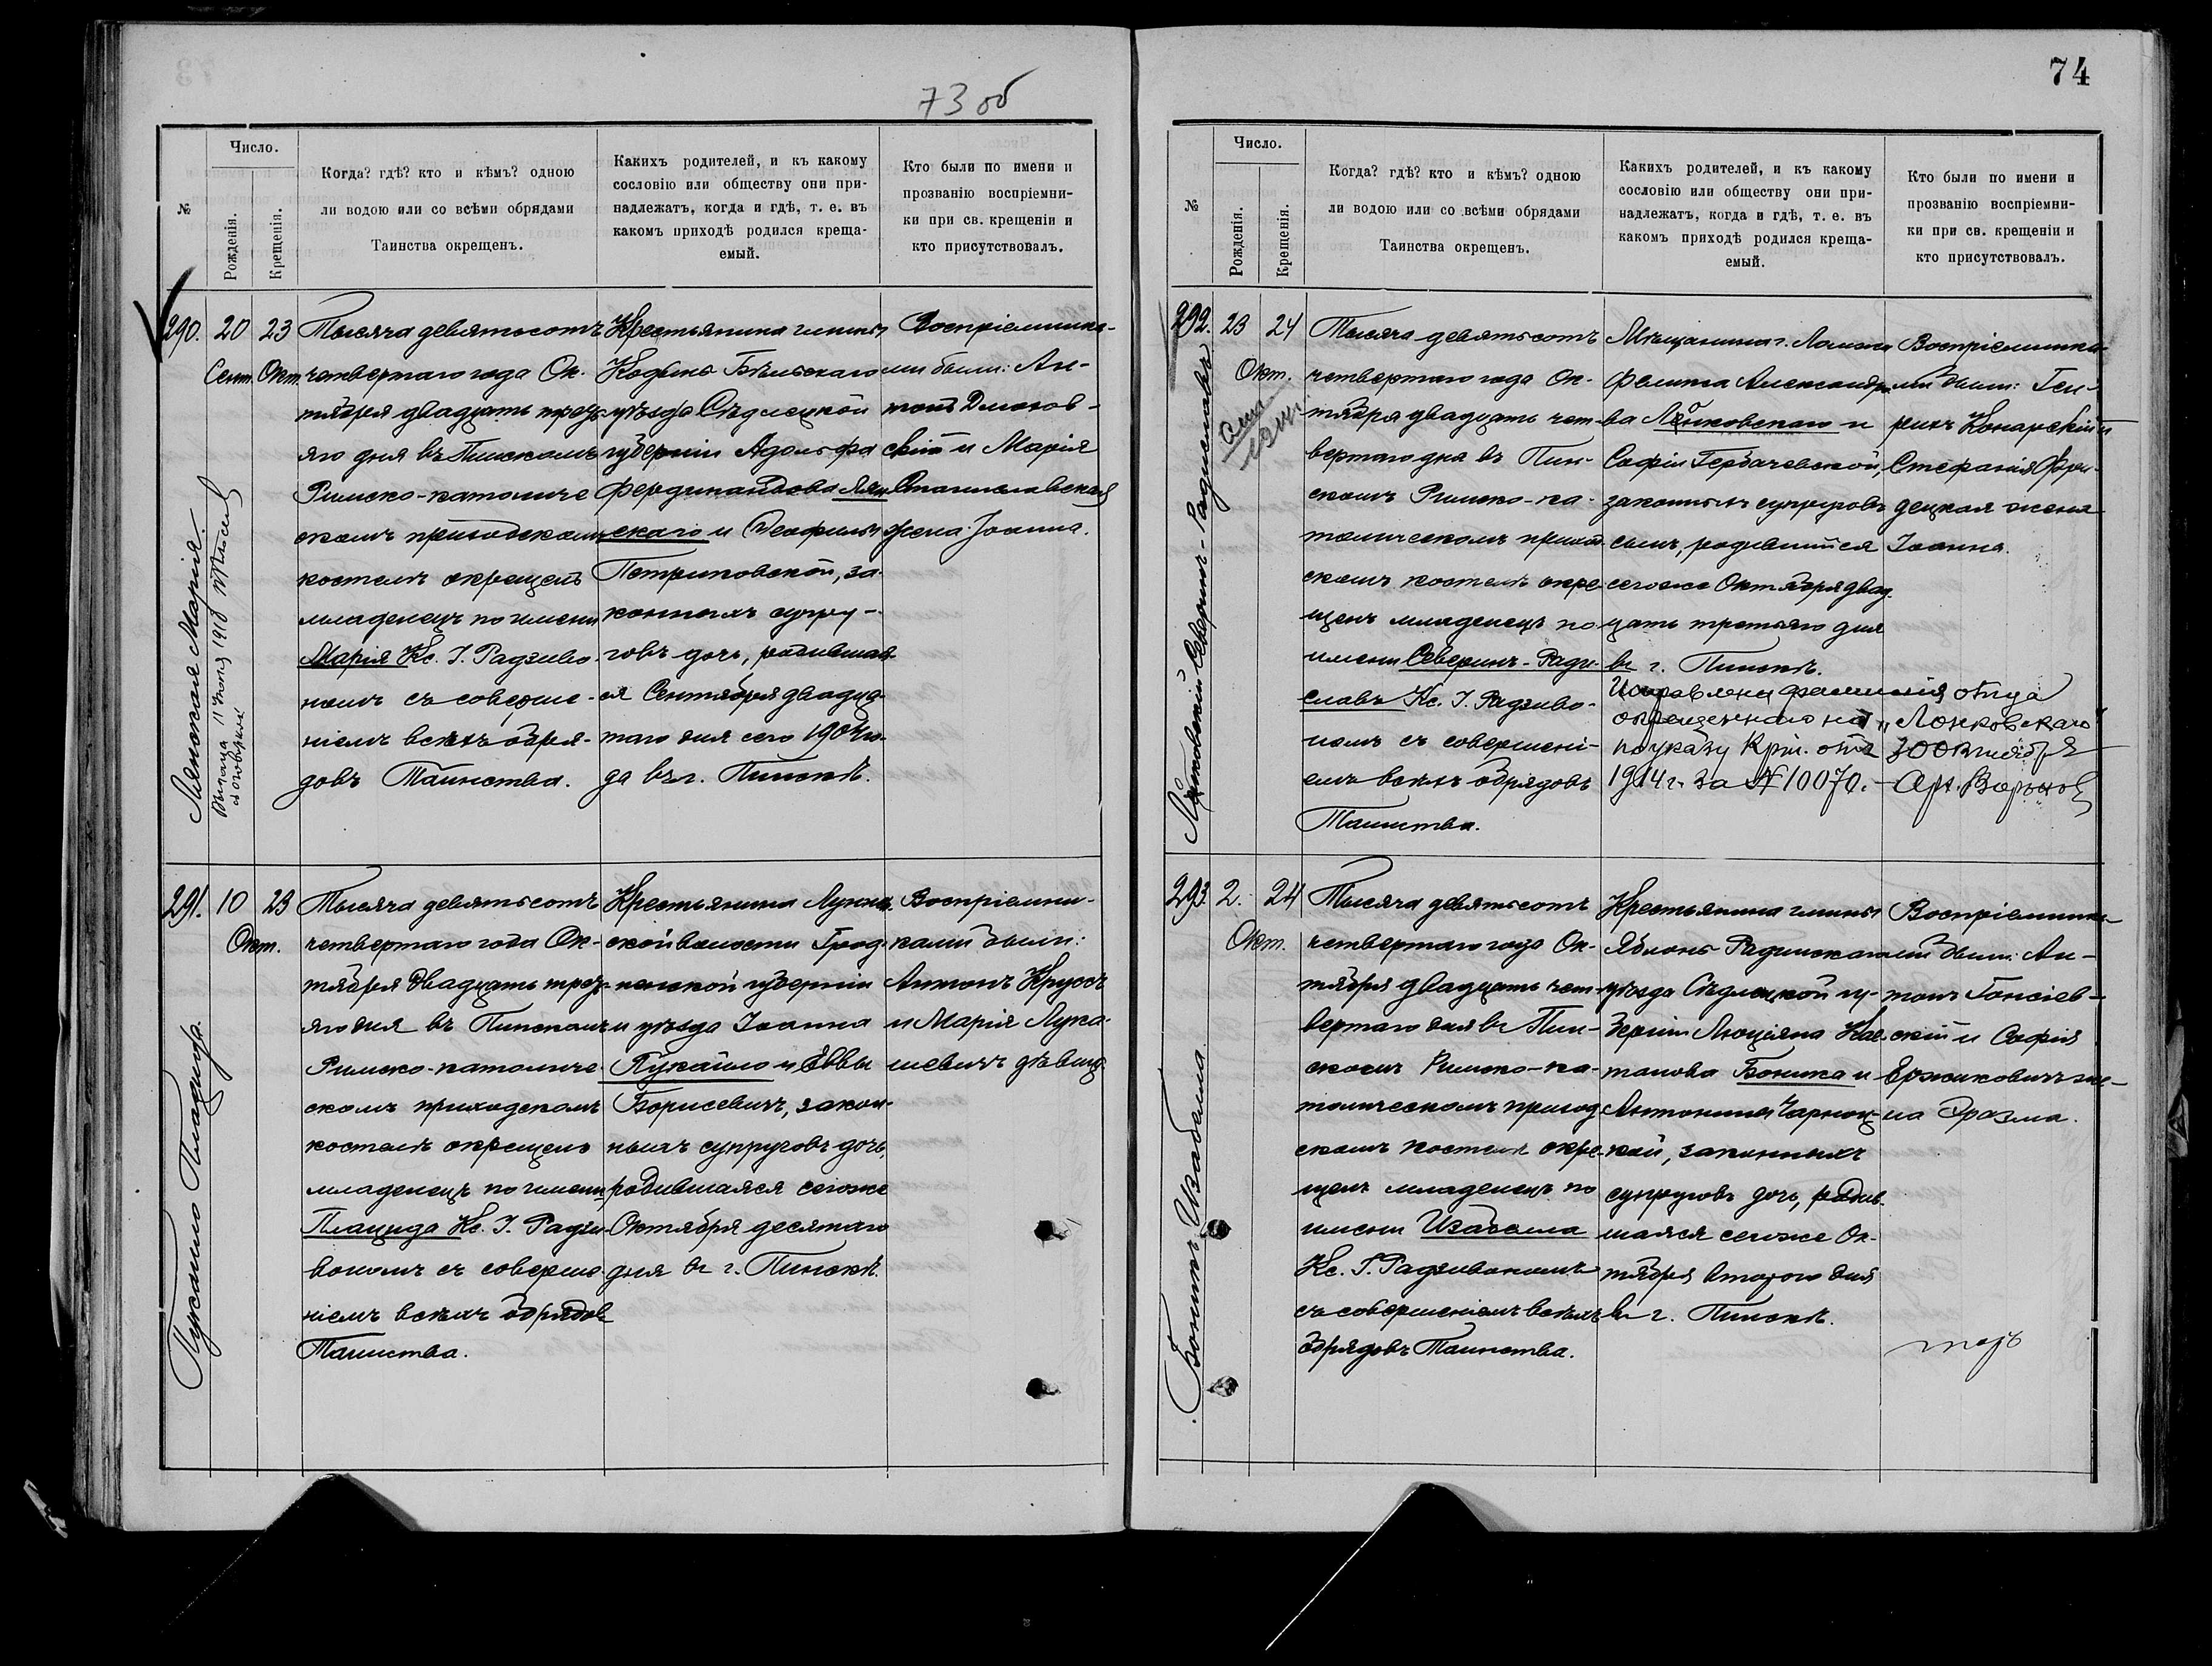 73 об
Число.
№
Рожденія.
Крещенія.
Когда? гдѣ? кто и кѣмъ? одною
ли водою или со всѣми обрядами
Таинства окрещенъ.
Какихъ родителей, и къ какому
сословію или обществу они при-
надлежатъ, когда и гдѣ, т. е. въ
какомъ приходѣ родился креща-
емый.
Кто были по имени и
прозванію воспріемни-
ки при св. крещеніи и
кто присутствовалъ.
290.
Лянская Марія.
Выписа 11 Іюня 1918
20
Сент.
23
Окт.
Тысяча девятьсотъ
четвертаго года Ок-
тября двадцать треть-
яго дня въ Пинскомъ
Римско-католиче
скомъ приходскомъ
костелѣ окрещенъ
младенецъ по имени
Марія Кс. І. Радзиво-
номъ съ соверше-
ніемъ всѣхъ обря-
довъ Таинства.
Крестьянина гмины
Кодень Бѣльскаго
уѣзда Сѣдлецкой
губерніи Адольфа
Фердинандова Лян
скаго и Теофили
Петриковской, за-
конныхъ супру-
говъ дочь, родившая-
ся Сентября двадца-
таго дня сего 1904 го-
да въ г. Пинскѣ.
Воспріемника-
ми были: Ан-
тонъ Длоков-
скій и Марія
Станиславская
жена Іоанна.
291.
Пукайло Плацида.
10
23
Окт.
Тысяча девятьсотъ
четвертаго года Ок-
тября двадцать треть-
яго дня въ Пинскомъ
Римско-католиче
скомъ приходскомъ
костелѣ окрещенъ
младенецъ по имени
Плацида Кс. І. Радзи-
вономъ съ соверше-
ніемъ всѣхъ обрядовъ
Таинства.
Крестьянина Лунна-
ской волости Грод-
ненской губерніи
и уѣзда Іоанна
Пукайло и Еввы
Борисевичъ, закон-
ныхъ супруговъ дочь,
родившаяся сегоже
Октября десятаго
дня въ г. Пинскѣ.
Воспріемни-
ками были:
Антонъ Крусъ
и Марія Лука-
шевичъ дѣвица.
74
Число.
№
Рожденія.
Крещенія.
Когда? гдѣ? кто и кѣмъ? одною
ли водою или со всѣми обрядами
Таинства окрещенъ.
Какихъ родителей, и къ какому
сословію или обществу они при-
надлежатъ, когда и гдѣ, т. е. въ
какомъ приходѣ родился креща-
емый.
Кто были по имени и
прозванію воспріемни-
ки при св. крещеніи и
кто присутствовалъ.
292.
Лонковскій Северинъ-Радиславъ
23
24
Окт.
Тысяча девятьсотъ
четвертаго года Ок-
тября двадцать чет-
вертаго дня въ Пин-
скомъ Римско-ка-
толическомъ приход-
скомъ костелѣ окре-
щенъ младенецъ по
имени Северинъ-Ради-
славъ Кс. І. Радзиво-
номъ съ совершені-
емъ всѣхъ обрядовъ
Таинства.
Мѣщанина г. Ломжи
Феликса Александро-
ва Лонковскаго и
Софіи Горбачевской,
законныхъ супруговъ
сынъ, родившійся
сегоже Октября двад-
цать третьяго дня
въ г. Пинскѣ.
Исправлена фамилія отца
окрещеннаго на „Лонковскаго"
по указу Крім. отъ 30 Октября
1914 г. за № 10070.
Воспріемника-
ми были: Ген-
рикъ Конарскій и
Стефанія Фри-
децкая жена
Іоанна.
293.
Боникъ Изабелла
2.
24
Окт.
Тысяча девятьсотъ
четвертаго года Ок-
тября двадцать чет-
вертаго дня въ Пин-
скомъ Римско-ка-
толическомъ приход
скомъ костелѣ окре-
щенъ младенецъ по
имени Изабелла
Кс. І. Радзивономъ
съ совершеніемъ всѣхъ
обрядовъ Таинства.
Крестьянина гмины
Яблонь Радинскаго
уѣзда Сѣдлецкой гу-
берніи Люціяна Кае-
танова Боника и
Антонины Чарнец-
кой, законныхъ
супруговъ дочь, родив-
шаяся сегоже Ок-
тября втораго дня
въ г. Пинскѣ.
Воспріемника-
ми были: Ан-
тонъ Гонсіев-
скій и Софія
Ержиковичъ же-
на Эразма.